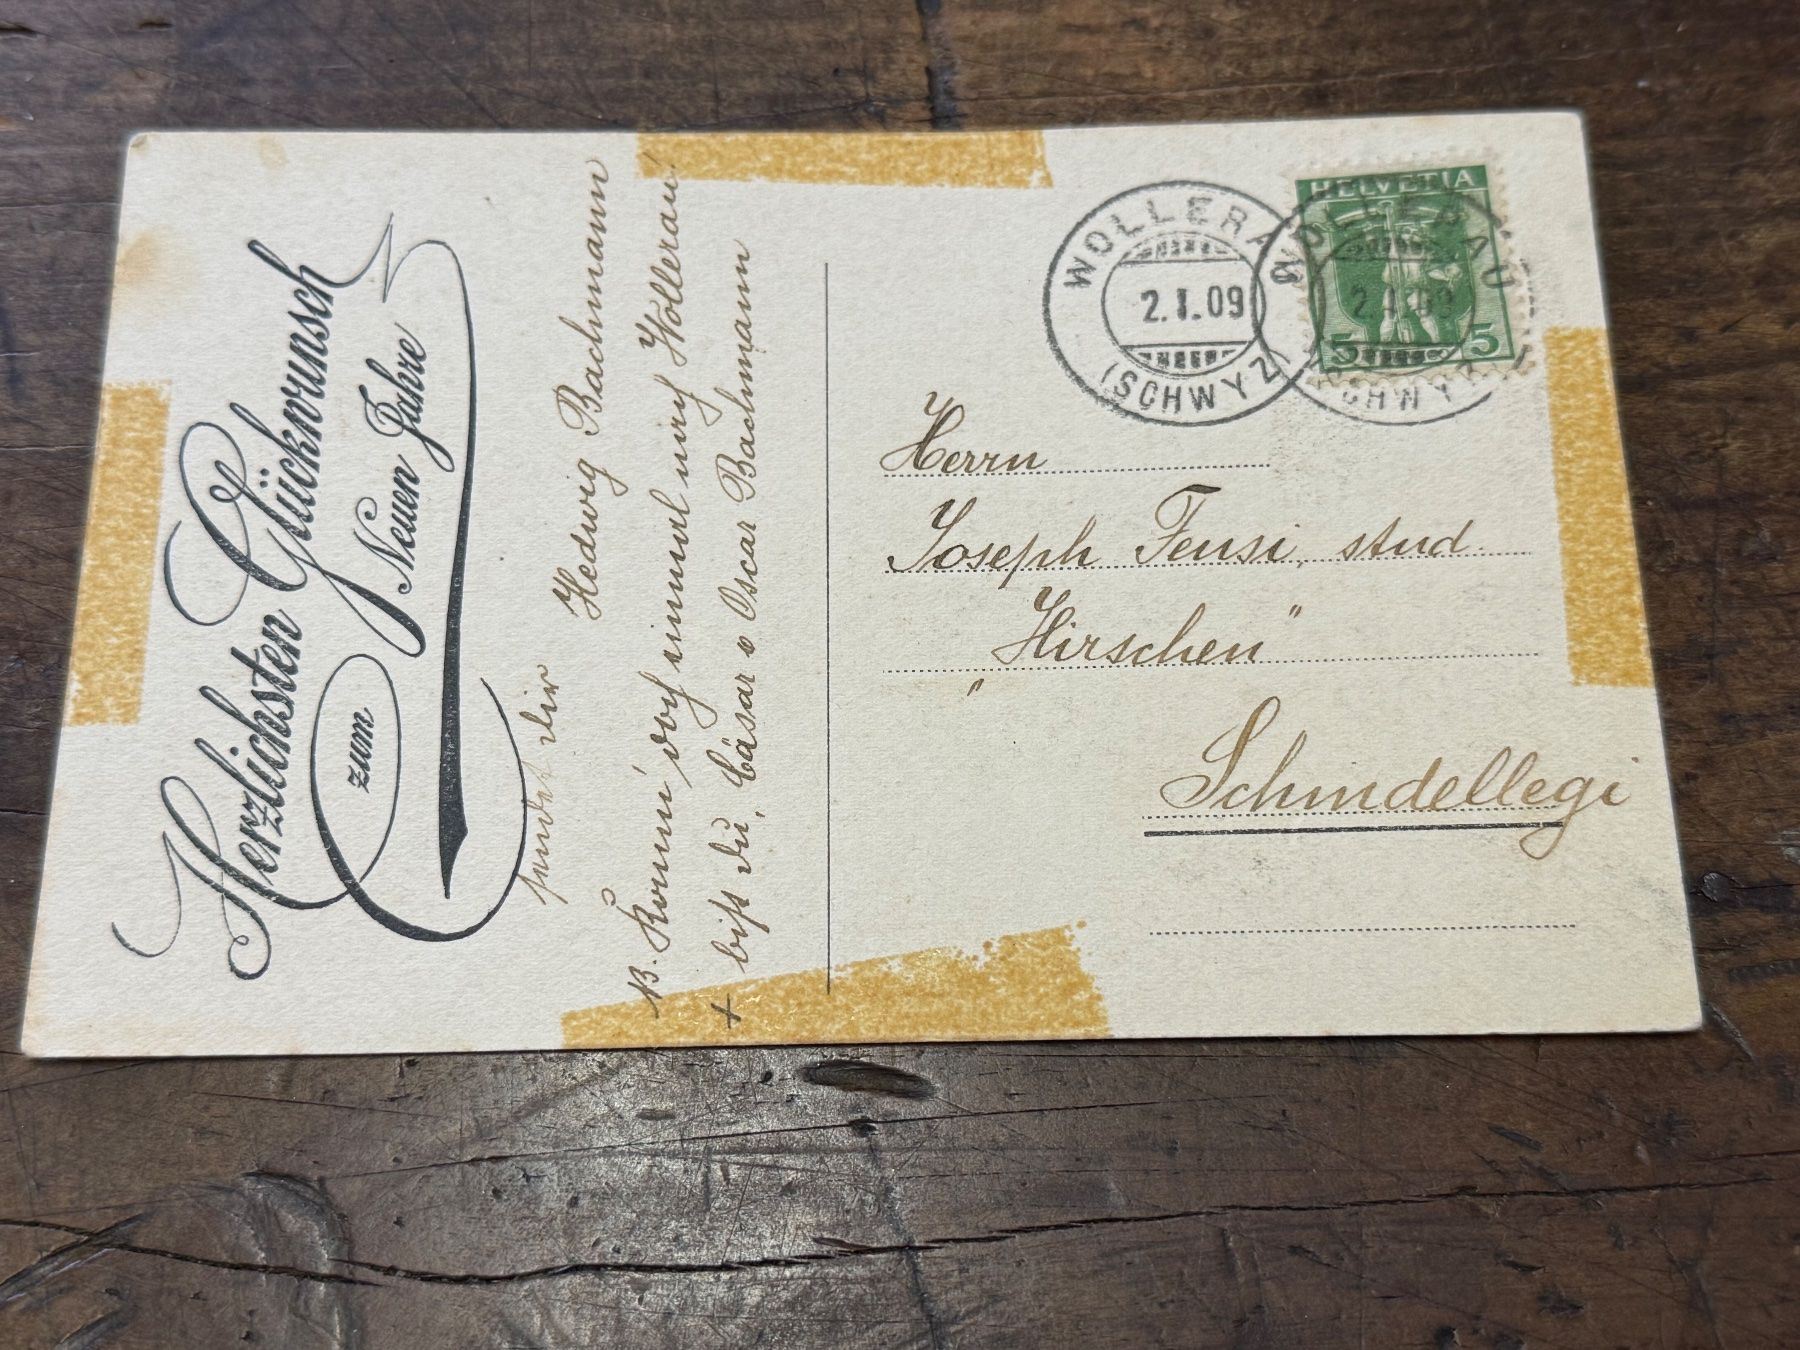 Herzlichsten Glückwunsch
zum
Neuen Jahre
sendet dir
Hedwig Bachmann
Komm' doch einmal nach Wollerau!
+ bist du, Cäsar u Oscar Bachmann
WOLLERAU
2.I.09
(SCHWYZ)
WOLLERAU
2.I.09
SCHWYZ
HELVETIA
5 5
Herrn
Joseph Feusi, stud.
"Hirschen"
Schindellegi